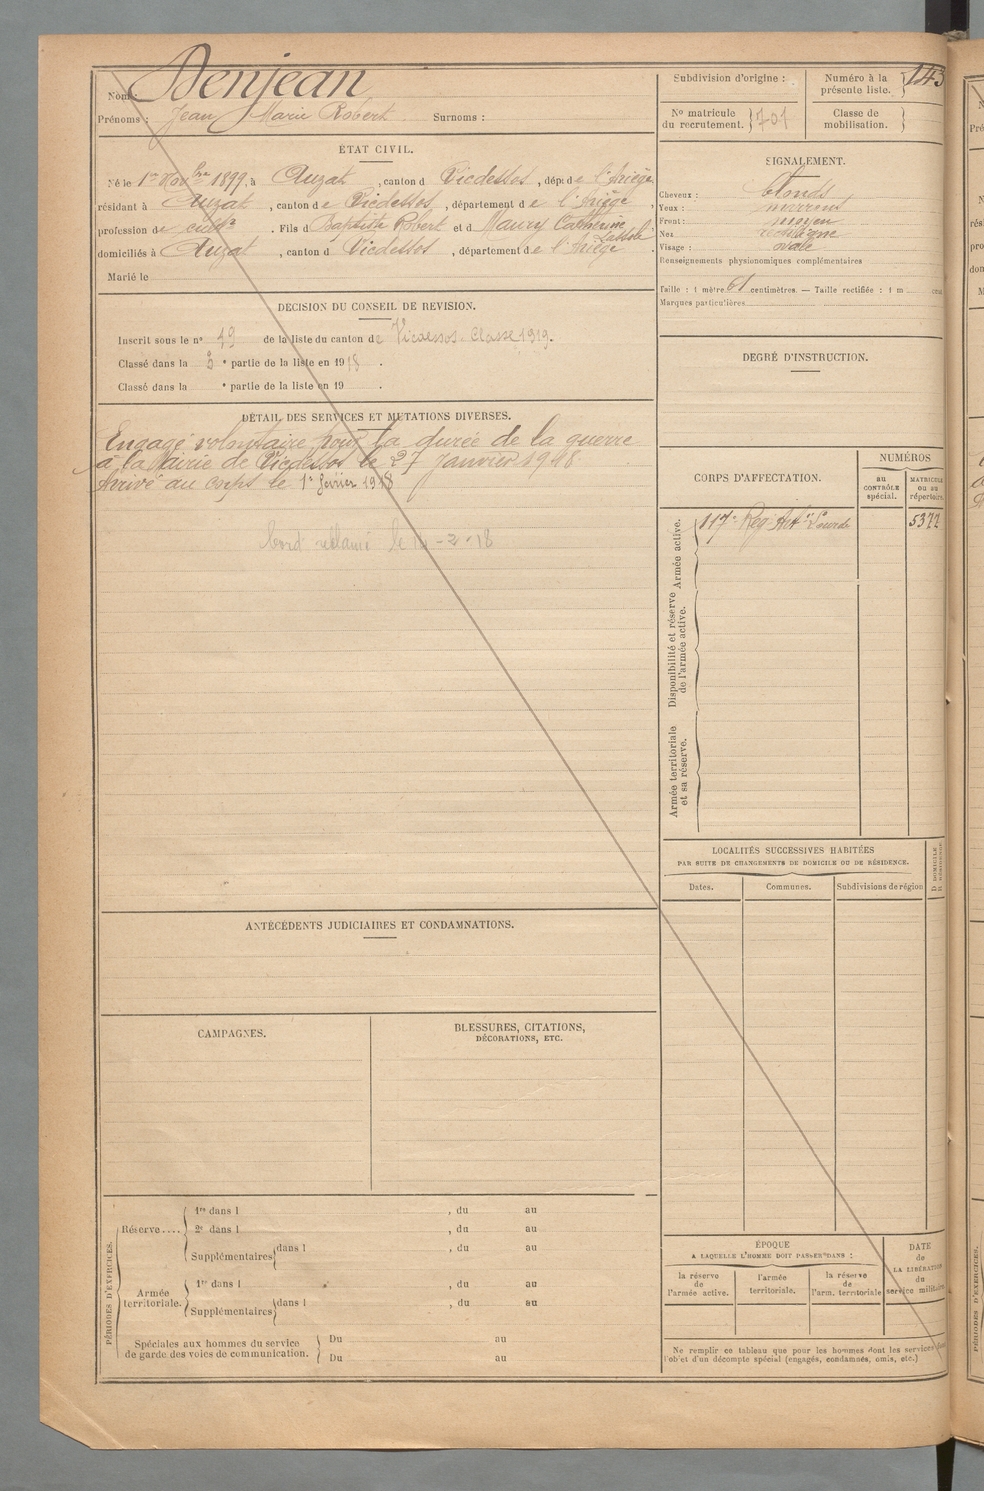 Nom : Denjean
Prénoms : Jean Marie Robert Surnoms :
ÉTAT CIVIL.
Né le 1er Novbre 1899, à Auzat, canton d Vicdessos, dépt de l'Ariège
résidant à Auzat, canton de Vicdessos, département de l'Ariège,
profession de cultr. Fils d Baptiste Robert et d Maury Catherine
domiciliés à Auzat, canton d Vicdessos, département de l'Ariège.
Marié le
DÉCISION DU CONSEIL DE REVISION.
Inscrit sous le n° 19 de la liste du canton de Vicdessos. Classe 1919.
Classé dans la 3 e partie de la liste en 1918.
Classé dans la e partie de la liste en 19 .
DÉTAIL DES SERVICES ET MUTATIONS DIVERSES.
Engagé volontaire pour la durée de la guerre
à la Mairie de Vicdessos le 27 Janvier 1918
Arrivé au corps le 1er février 1918
réclamé le -2-18
ANTÉCÉDENTS JUDICIAIRES ET CONDAMNATIONS.
CAMPAGNES.
BLESSURES, CITATIONS,
DÉCORATIONS, ETC.
PÉRIODES D'EXERCICES.
Réserve....
1re dans l , du au
2e dans l , du au
Supplémentaires dans l , du au
Armée
territoriale.
1re dans l , du au
Supplémentaires dans l , du au
Spéciales aux hommes du service
de garde des voies de communication.
Du au
Du au
Subdivision d'origine :
Numéro à la
présente liste. 143
N° matricule
du recrutement. 701
Classe de
mobilisation.
SIGNALEMENT.
Cheveux : blonds
Yeux : marrons
Front : moyen
Nez rectiligne
Visage : ovale
Renseignements physionomiques complémentaires
Taille : 1 mètre 61 centimètres. — Taille rectifiée : 1 m cent
Marques particulières
DEGRÉ D'INSTRUCTION.
CORPS D'AFFECTATION.
NUMÉROS
au
CONTRÔLE
spécial.
MATRICULE
ou au
répertoire.
Armée active.
117e Reg. Artie Lourde 5372
Disponibilité et réserve
de l'armée active.
Armée territoriale
et sa réserve.
LOCALITÉS SUCCESSIVES HABITÉES
PAR SUITE DE CHANGEMENTS DE DOMICILE OU DE RÉSIDENCE.
Dates. Communes. Subdivisions de région
D. DOMICILE
R. RÉSIDENCE.
ÉPOQUE
A LAQUELLE L'HOMME DOIT PASSER DANS :
la réserve
de
l'armée active.
l'armée
territoriale.
la réserve
de
l'arm. territoriale
DATE
de
LA LIBÉRATION
du
service militaire
Ne remplir ce tableau que pour les hommes dont les services font
l'objet d'un décompte spécial (engagés, condamnés, omis, etc.)
PÉRIODES D'EXERCICES.